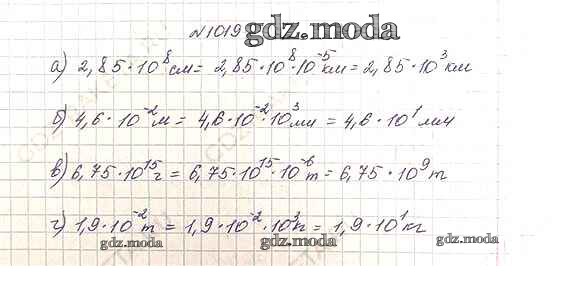 №1019 gdz.moda
а) 2,85·10⁸см = 2,85·10⁸·10⁻⁵км = 2,85·10³км
б) 4,6·10⁻²м = 4,6·10⁻²·10³мм = 4,6·10¹мм
в) 6,75·10¹⁵г = 6,75·10¹⁵·10⁻⁶т = 6,75·10⁹т
г) 1,9·10⁻²т = 1,9·10⁻²·10³ = 1,9·10¹кг
gdz.moda gdz.moda gdz.moda